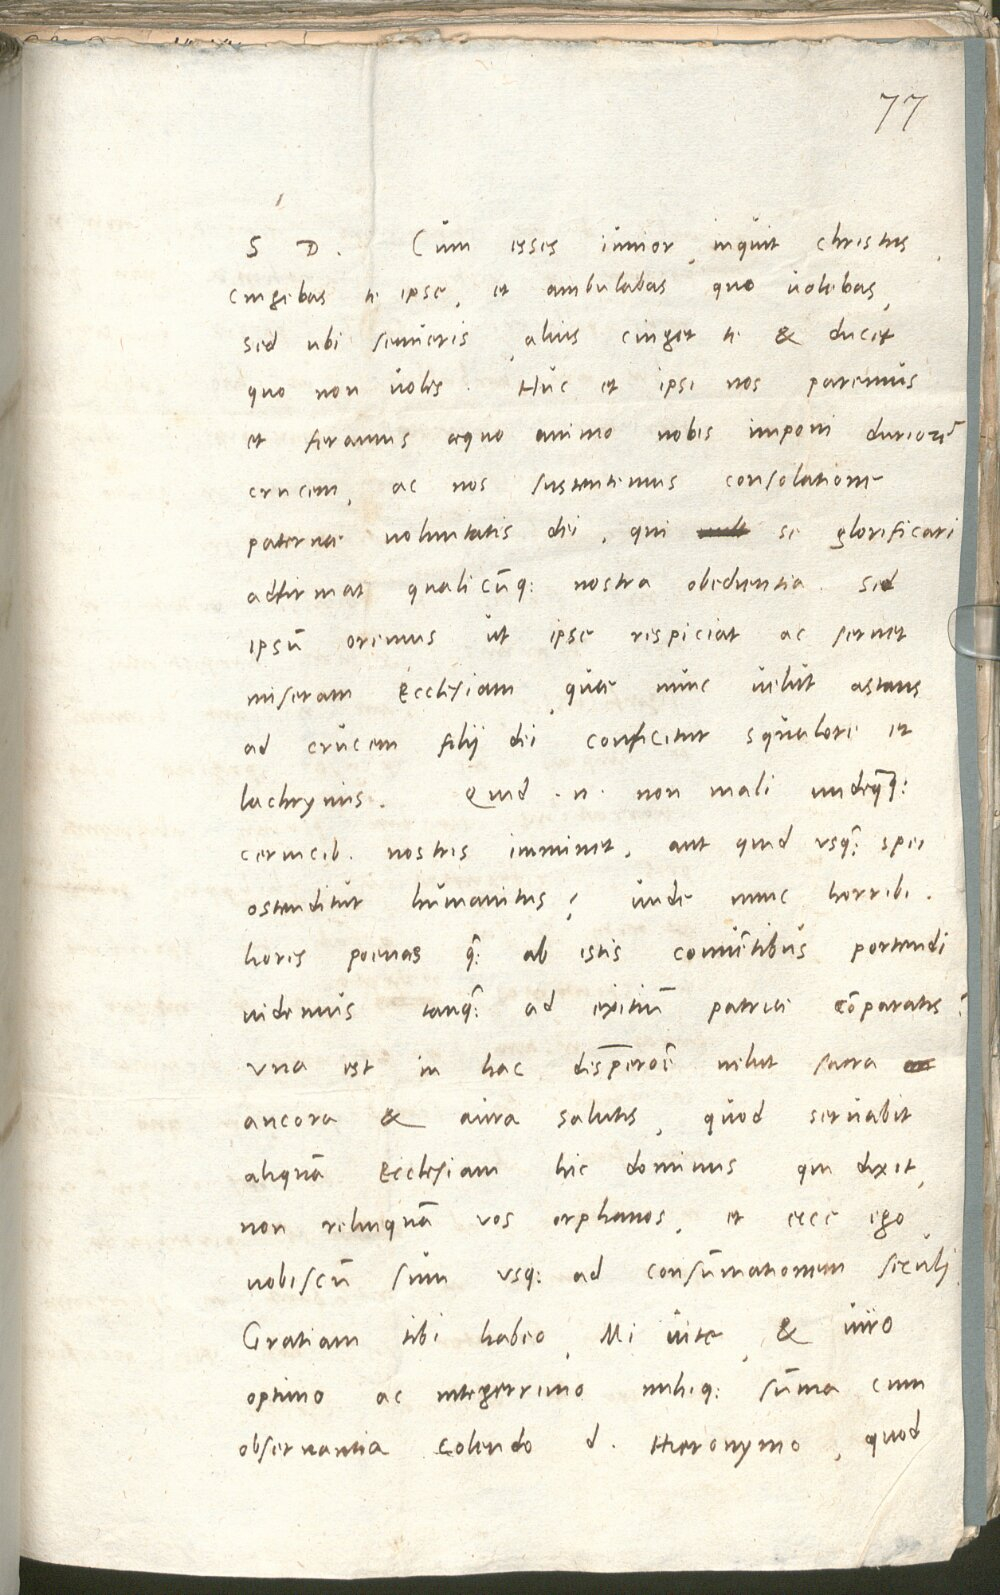 77
S D. Cum esses iunior, inquit christus,
cingebas te ipse, et ambulabas quo uolebas,
sed ubi senueris, alius cinget te & ducet
quo non uoles. Huc et ipsi nos paremus
et feramus æquo animo nobis imponi duriorē
crucem, ac nos sustentemus consolatione
paternæ voluntatis dei, qui se glorificari
adfirmat qualicūq: nostra obedientia. Sed
ipsū oremus ut ipse respiciat ac seruet
miseram Ecclesiam, quæ nunc uelut astans
ad crucem filij dei conficitur squalore et
lachrymis. Quid .n. non mali undeq̄q̄:
ceruicib. nostris imminet, aut quid vsq̄: spei
ostenditur humanitus? unde nunc horribi.
liores poenas q̄: ab istis comitibus portendi
uidemus tanq̄: ad exitiū patriæ cōparatis?
vna est in hac disperoē uelut sacra
ancora & aura salutis, quod seruabit
aliquā Ecclesiam hic dominus qui dixit,
non relinquā vos orphanos, et ecce ego
uobiscū sum vsq: ad consūmationem seculi
Gratiam tibi habeo, Mi uite, & uiro
optimo ac integerrimo mihiq: sūma cum
obseruantia colendo d. Hieronymo, quod